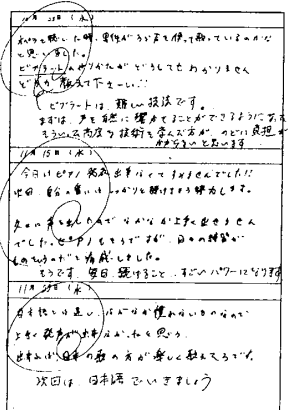 10月 25日 (水)
と思いました。
ビブラートのやりかたがどうしてもわかりません
どうか教えて下さーい
ビブラートは、難しい技法です。
まずは、声を自然に響かせることができるようになったら
そういった高度な技術を学んだ方が、のどに負担が
かからないと思います
11月 15日 (水)
今日はピアノ 出来なくてすみませんでした
次回、自分の しっかりと弾けるよう努力します。
久々に声を出したのでなかなか上手く出せません
でした。ピアノもそうですが、日々の練習が
ものをいうのだと痛感しました。
そうです。毎日、続けること、すごいパワーになります
11月 29日 (水)
日本語とは違い、なかなか慣れないものなので
上手く発声が出来なかったと思う。
出来れば、日本の歌の方が楽しく歌えそうです。
次回は、日本語でいきましょう